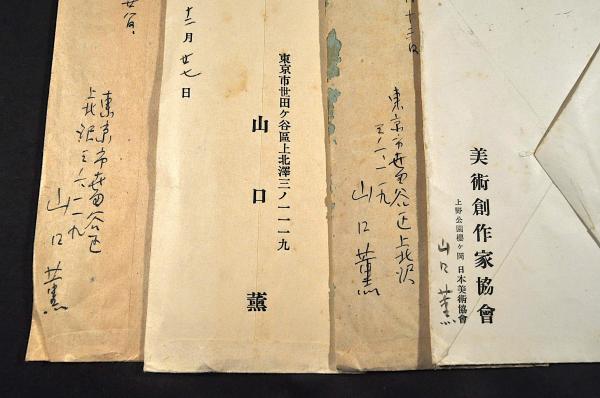 廿八日
東京市世田谷区
上北沢三ノ一一一九
山口薫
十二月廿七日
東京市世田ヶ谷區上北澤三ノ一一一九
山口薫
十二日
東京市世田谷区上北沢
三ノ一一一九
山口薫
美術創作家協會
上野公園櫻ヶ岡 日本美術協會
山口薫